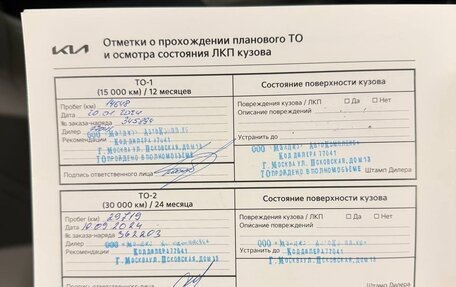 KIA
Отметки о прохождении планового ТО
и осмотра состояния ЛКП кузова
ТО-1
(15 000 км) / 12 месяцев
Состояние поверхности кузова
Пробег (км) 14648
Дата 20.01.2024
№ заказа-наряда 345790
Дилер
Рекомендации
ООО
Код дилера 77041
Г. Москва ул. Псковская, дом 13
ТО пройдено в полном объёме
Подпись ответственного лица
Повреждения кузова / ЛКП Да Нет
Описание повреждений
Устранить до
ООО
Код дилера 77041
Г. Москва ул. Псковская, дом 13
ТО пройдено в полном объёме
Штамп Дилера
ТО-2
(30 000 км) / 24 месяца
Состояние поверхности кузова
Пробег (км) 29719
Дата 10.09.2024
№ заказа-наряда 362203
Дилер
Рекомендации
ООО
Код дилера 77041
Г. Москва ул. Псковская, дом 13
Подпись ответственного лица
Повреждения кузова / ЛКП Да Нет
Описание повреждений
Устранить до
ООО
Код дилера 77041
Г. Москва ул. Псковская, дом 13
Штамп Дилера